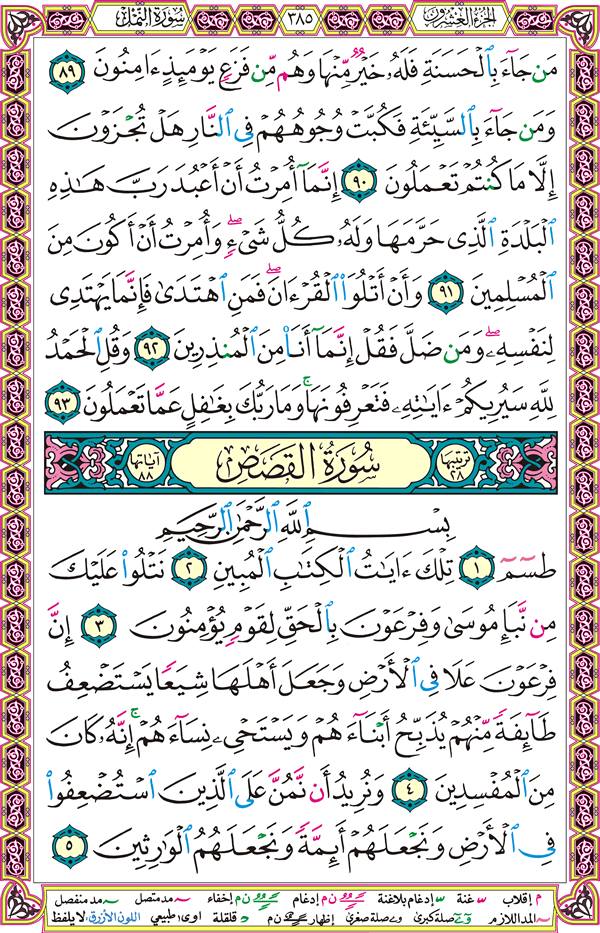 الجزء العشرون ٣٨٥ سورة النمل
مَن جَآءَ بِٱلْحَسَنَةِ فَلَهُۥ خَيْرٌ مِّنْهَا وَهُم مِّن فَزَعٍ يَوْمَئِذٍ ءَامِنُونَ ٨٩
وَمَن جَآءَ بِٱلسَّيِّئَةِ فَكُبَّتْ وُجُوهُهُمْ فِى ٱلنَّارِ هَلْ تُجْزَوْنَ
إِلَّا مَا كُنتُمْ تَعْمَلُونَ ٩٠ إِنَّمَآ أُمِرْتُ أَنْ أَعْبُدَ رَبَّ هَٰذِهِ
ٱلْبَلْدَةِ ٱلَّذِى حَرَّمَهَا وَلَهُۥ كُلُّ شَىْءٍ ۖ وَأُمِرْتُ أَنْ أَكُونَ مِنَ
ٱلْمُسْلِمِينَ ٩١ وَأَنْ أَتْلُوَا۟ ٱلْقُرْءَانَ ۖ فَمَنِ ٱهْتَدَىٰ فَإِنَّمَا يَهْتَدِى
لِنَفْسِهِۦ ۖ وَمَن ضَلَّ فَقُلْ إِنَّمَآ أَنَا۠ مِنَ ٱلْمُنذِرِينَ ٩٢ وَقُلِ ٱلْحَمْدُ
لِلَّهِ سَيُرِيكُمْ ءَايَٰتِهِۦ فَتَعْرِفُونَهَا ۚ وَمَا رَبُّكَ بِغَٰفِلٍ عَمَّا تَعْمَلُونَ ٩٣
ترتيبها ٢٨ سُورَةُ القَصَصِ آياتها ٨٨
بِسْمِ ٱللَّهِ ٱلرَّحْمَٰنِ ٱلرَّحِيمِ
طسٓمٓ ١ تِلْكَ ءَايَٰتُ ٱلْكِتَٰبِ ٱلْمُبِينِ ٢ نَتْلُوا۟ عَلَيْكَ
مِن نَّبَإِ مُوسَىٰ وَفِرْعَوْنَ بِٱلْحَقِّ لِقَوْمٍ يُؤْمِنُونَ ٣ إِنَّ
فِرْعَوْنَ عَلَا فِى ٱلْأَرْضِ وَجَعَلَ أَهْلَهَا شِيَعًا يَسْتَضْعِفُ
طَآئِفَةً مِّنْهُمْ يُذَبِّحُ أَبْنَآءَهُمْ وَيَسْتَحْىِۦ نِسَآءَهُمْ ۚ إِنَّهُۥ كَانَ
مِنَ ٱلْمُفْسِدِينَ ٤ وَنُرِيدُ أَن نَّمُنَّ عَلَى ٱلَّذِينَ ٱسْتُضْعِفُوا۟
فِى ٱلْأَرْضِ وَنَجْعَلَهُمْ أَئِمَّةً وَنَجْعَلَهُمُ ٱلْوَٰرِثِينَ ٥
م إقلاب غنة إدغام بلاغنة ن م إدغام ن م إخفاء مد متصل مد منفصل
المد اللازم صلة كبرى صلة صغرى إظهار ن م قلقلة اوى: طبيعي اللون الأزرق: لا يلفظ